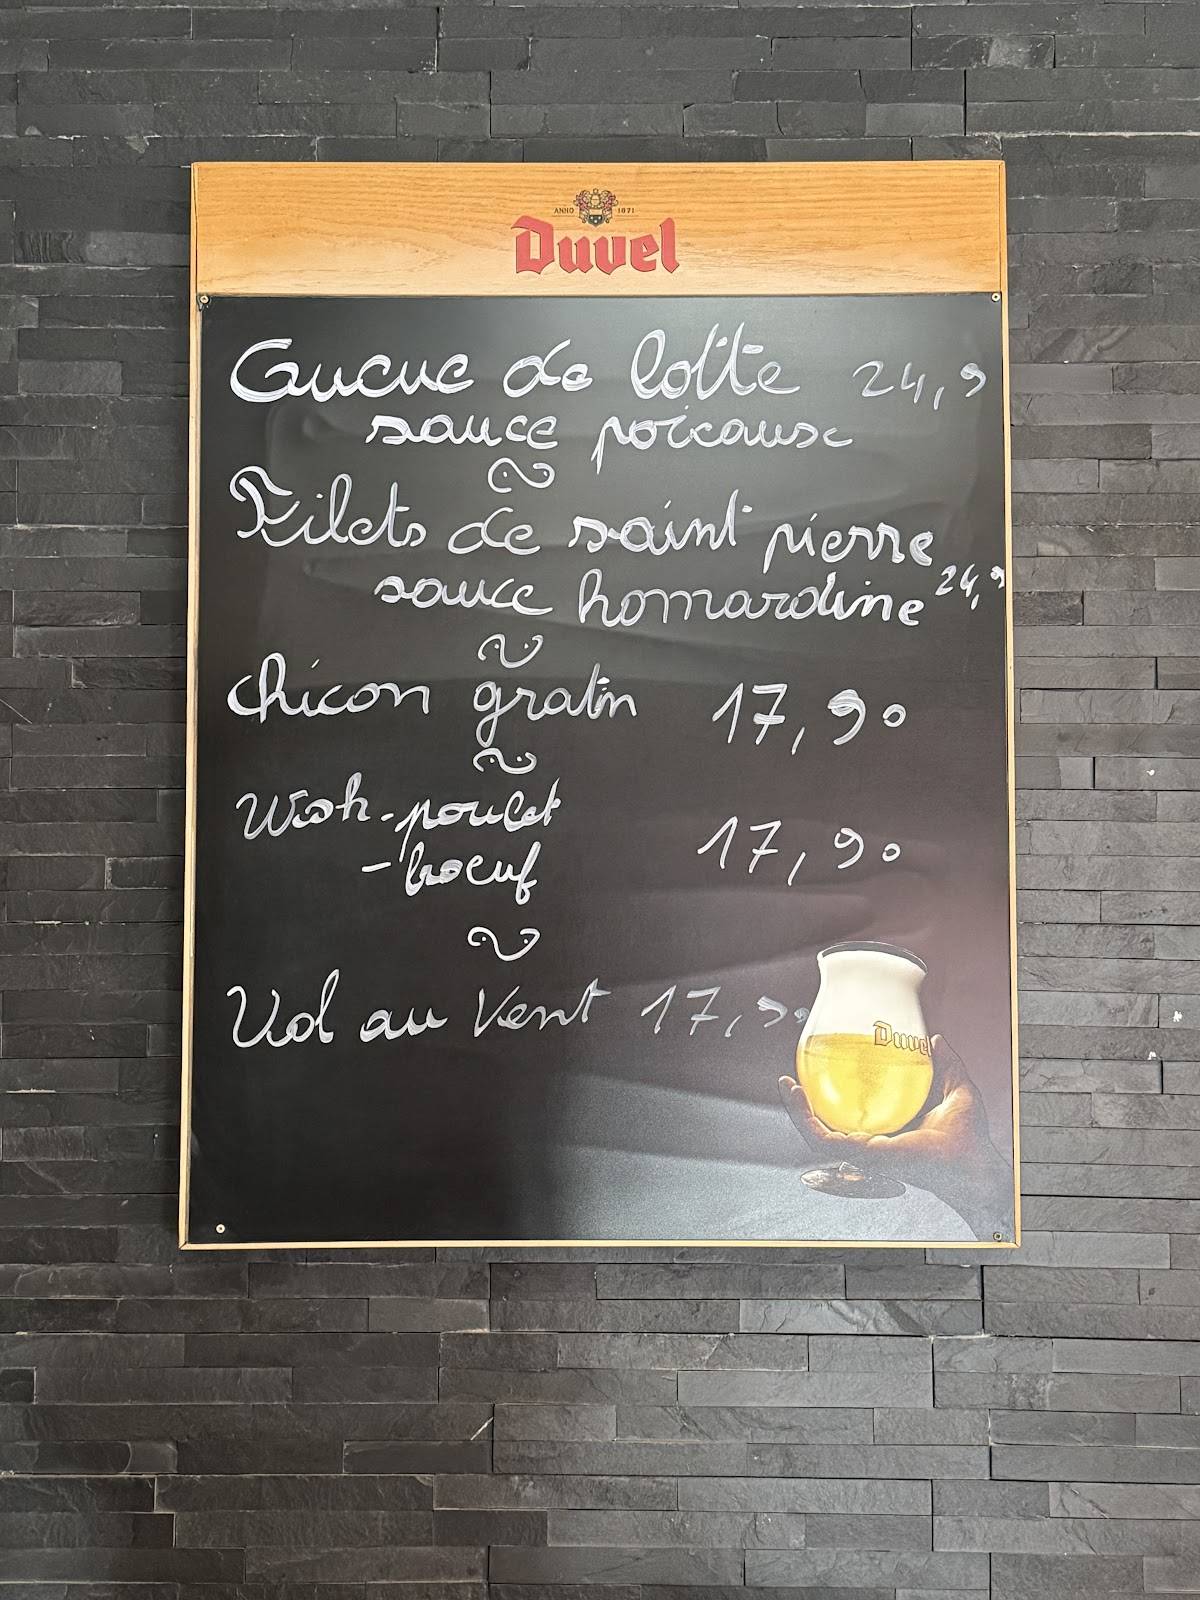 ANNO 1871
Duvel
Queue de lotte 24,9
sauce poivause
Filets de saint pierre
sauce homardine 24,9
chicon gratin 17,90
Wok - poulet
- boeuf 17,90
Vol au Vent 17,90
Duvel